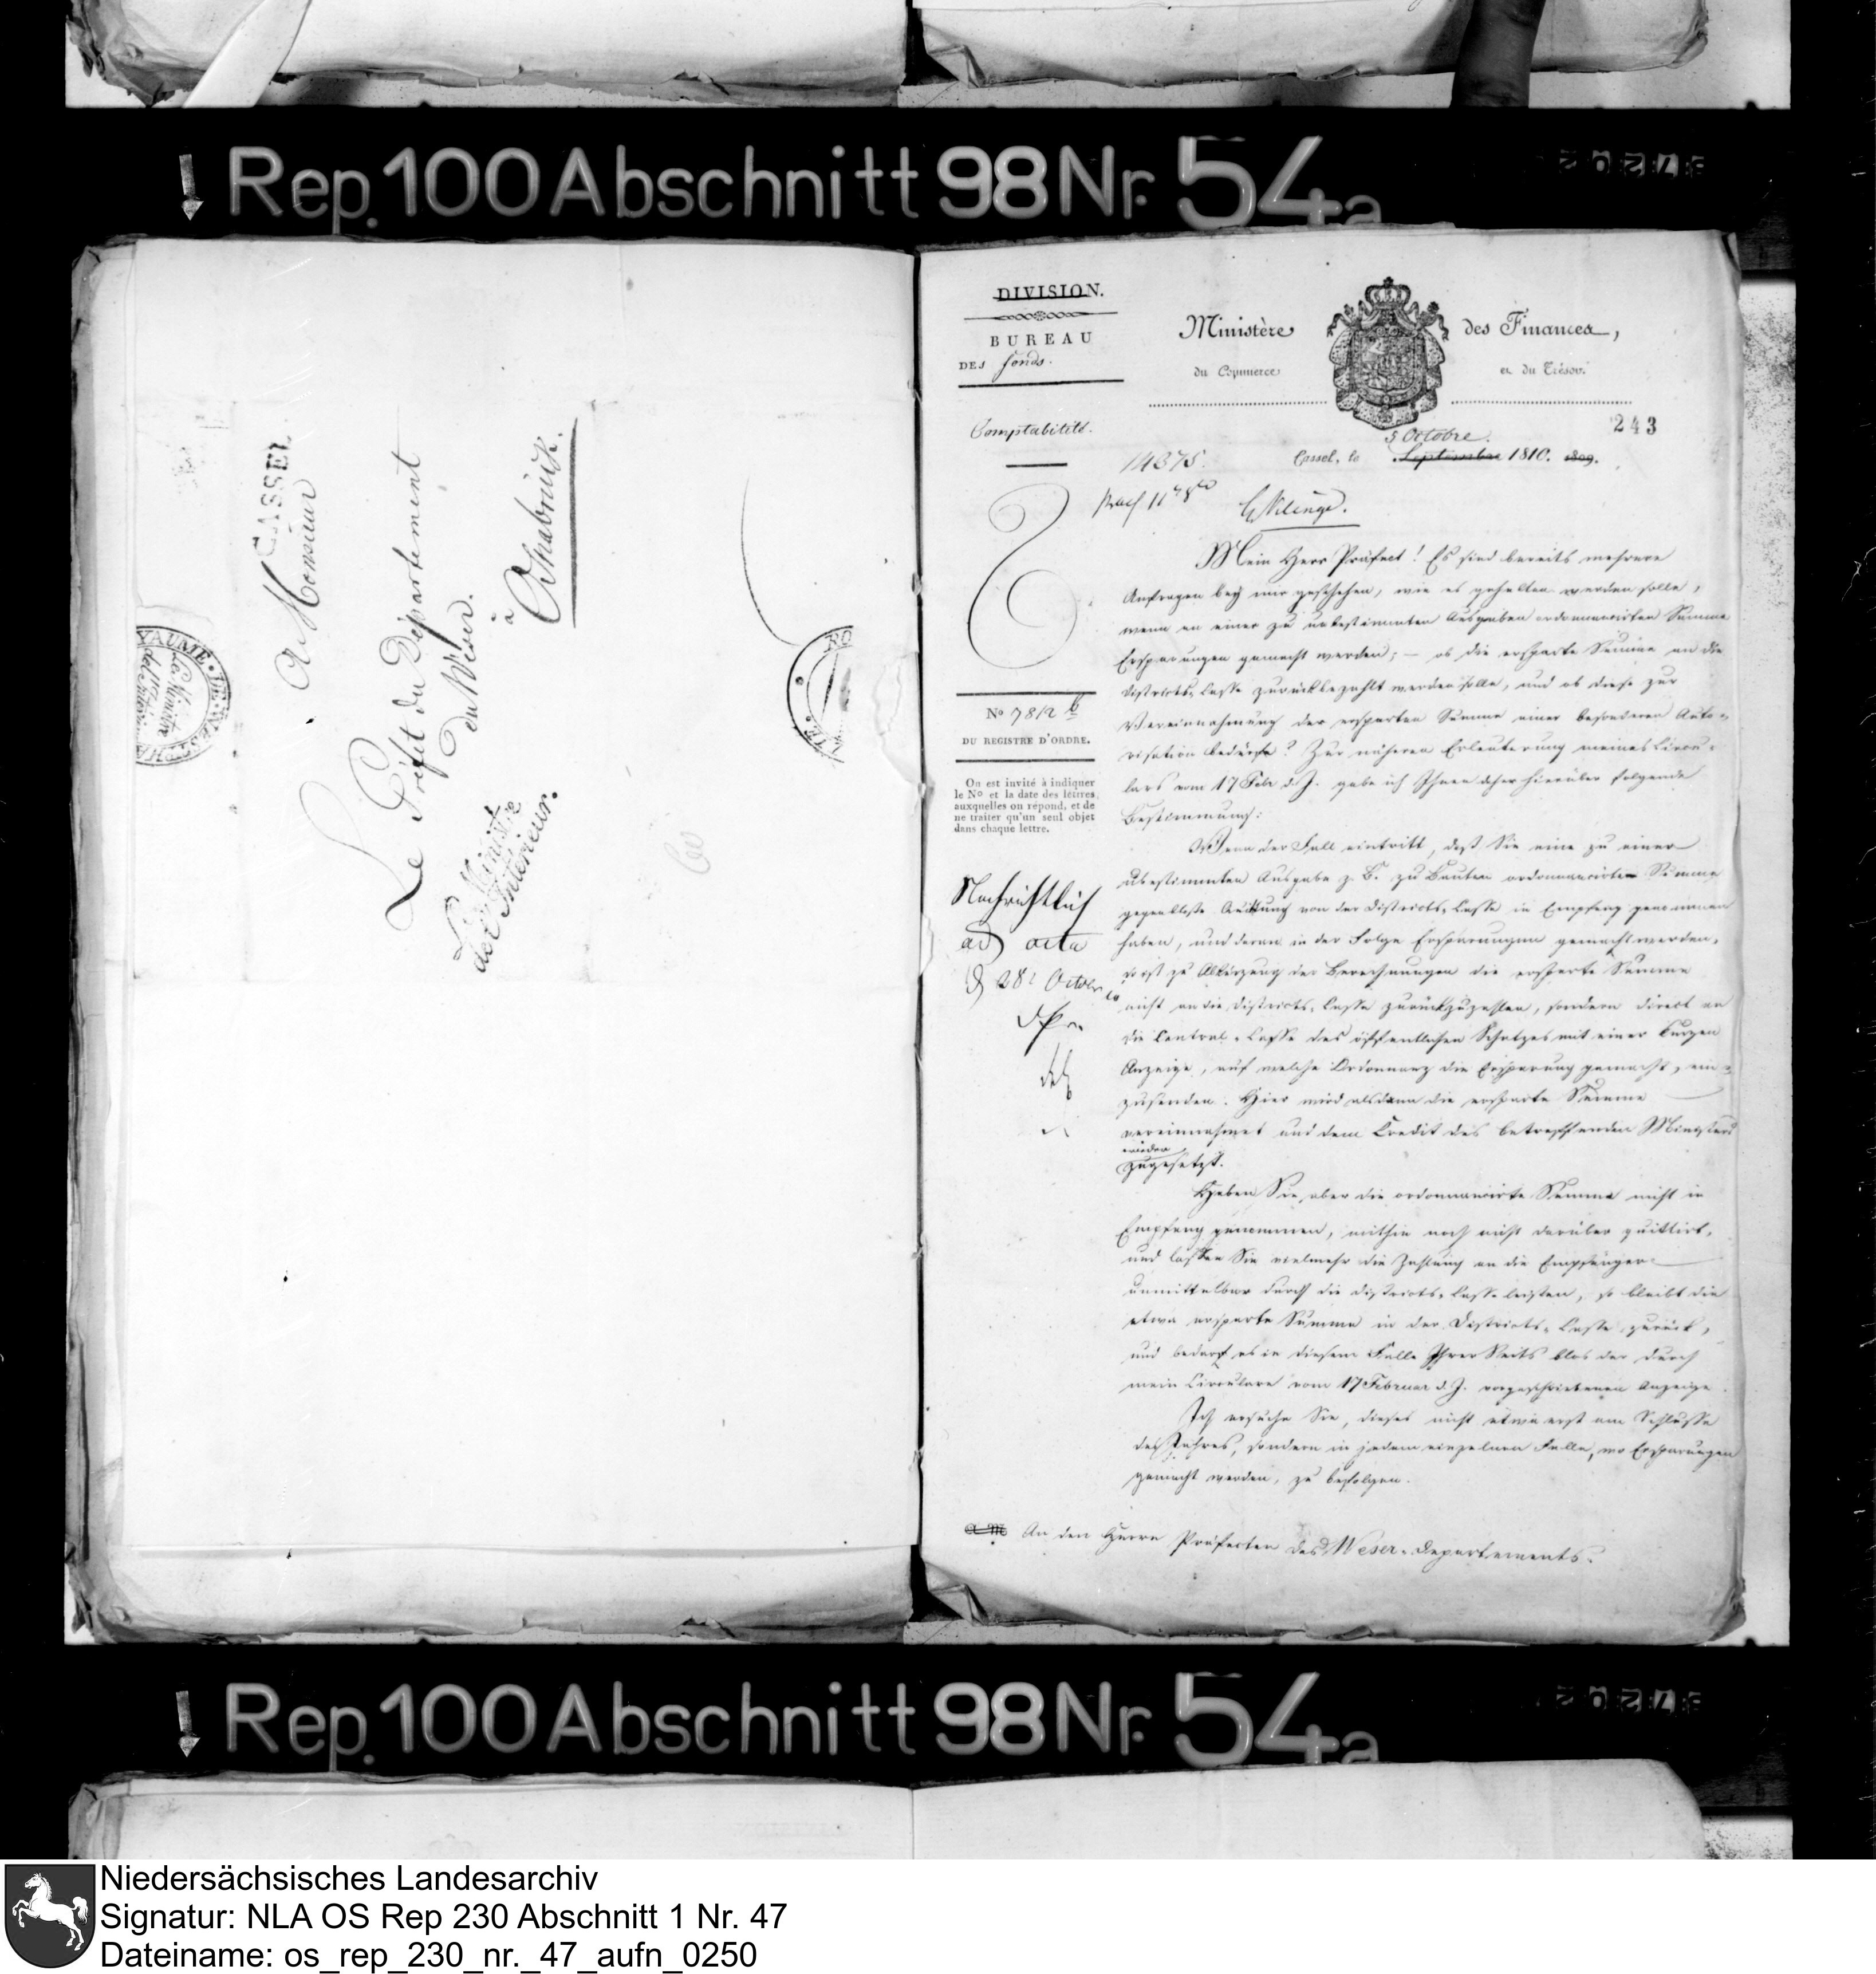 Rep. 100 Abschnitt 98 Nr. 54a
CASSEL.
A Monsieur
Le Préfet du Département
du Weser.
à
Osnabrück.
Le Ministre
de l'Intérieur.
YAUME DE WESTPHA
Le Ministre
de l'Intérieur
RO
DIVISION.
BUREAU
DES fonds.
Comptabilité.
Ministère des Finances,
du Commerce et du Trésor.
243
5 Octobre.
Cassel, le Septembre 1810. 1809.
14375.
No 7812 b
DU REGISTRE D'ORDRE.
On est invité à indiquer
le No et la date des lettres
auxquelles on répond, et de
ne traiter qu'un seul objet
dans chaque lettre.
Nachrichtlich
ad acta
28 October
Mein Herr Präfect! Es sind bereits mehrere
Anfragen bey mir geschehen, wie es gehalten werden solle,
wenn an einer zu unbestimmten Ausgaben ordonnancirten Summe
Ersparungen gemacht werden; – ob die ersparte Summe an die
Districts-Casse zurückbezahlt werden solle, und ob diese zur
Vereinnahmung der ersparten Summe einer besonderen Auto-
risation bedürfe? Zur näheren Erleuterung meines Circu-
lars vom 17 Febr d. J. gebe ich Ihnen daher hierüber folgende
Bestimmung:
Wenn der Fall eintritt, daß Sie eine zu einer
unbestimmten Ausgabe z. B. zu Bauten ordonnancirte Summe
gegen bloße Quittung von der Districts-Casse in Empfang genommen
haben, und daran in der Folge Ersparungen gemacht werden,
so ist zu Abkürzung der Berechnungen die ersparte Summe
nicht an die Districts-Casse zurückzuzahlen, sondern direct an
die Central-Casse des öffentlichen Schatzes mit einer kurzen
Anzeige, auf welche Ordonnanz die Ersparung gemacht, ein-
zusenden. Hier wird alsdann die ersparte Summe
vereinnahmet und dem Credit des betreffenden Ministers
wieder
zugesetzt.
Haben Sie aber die ordonnancirte Summe nicht in
Empfang genommen, mithin noch nicht darüber quittirt,
und lassen Sie vielmehr die Zahlung an die Empfänger
unmittelbar durch die Districts-Casse leisten, so bleibt die
etwa ersparte Summe in der Districts-Casse zurück,
und bedarf es in diesem Falle Ihrer Seits blos der durch
mein Circulare vom 17 Februar d. J. vorgeschriebenen Anzeige.
Ich ersuche Sie, dieses nicht etwa erst am Schlusse
des Jahres, sondern in jedem einzelnen Falle, wo Ersparungen
gemacht werden, zu befolgen.
An den Herrn Präfecten des Weser-Departements.
Rep. 100 Abschnitt 98 Nr. 54a
Niedersächsisches Landesarchiv
Signatur: NLA OS Rep 230 Abschnitt 1 Nr. 47
Dateiname: os_rep_230_nr._47_aufn_0250